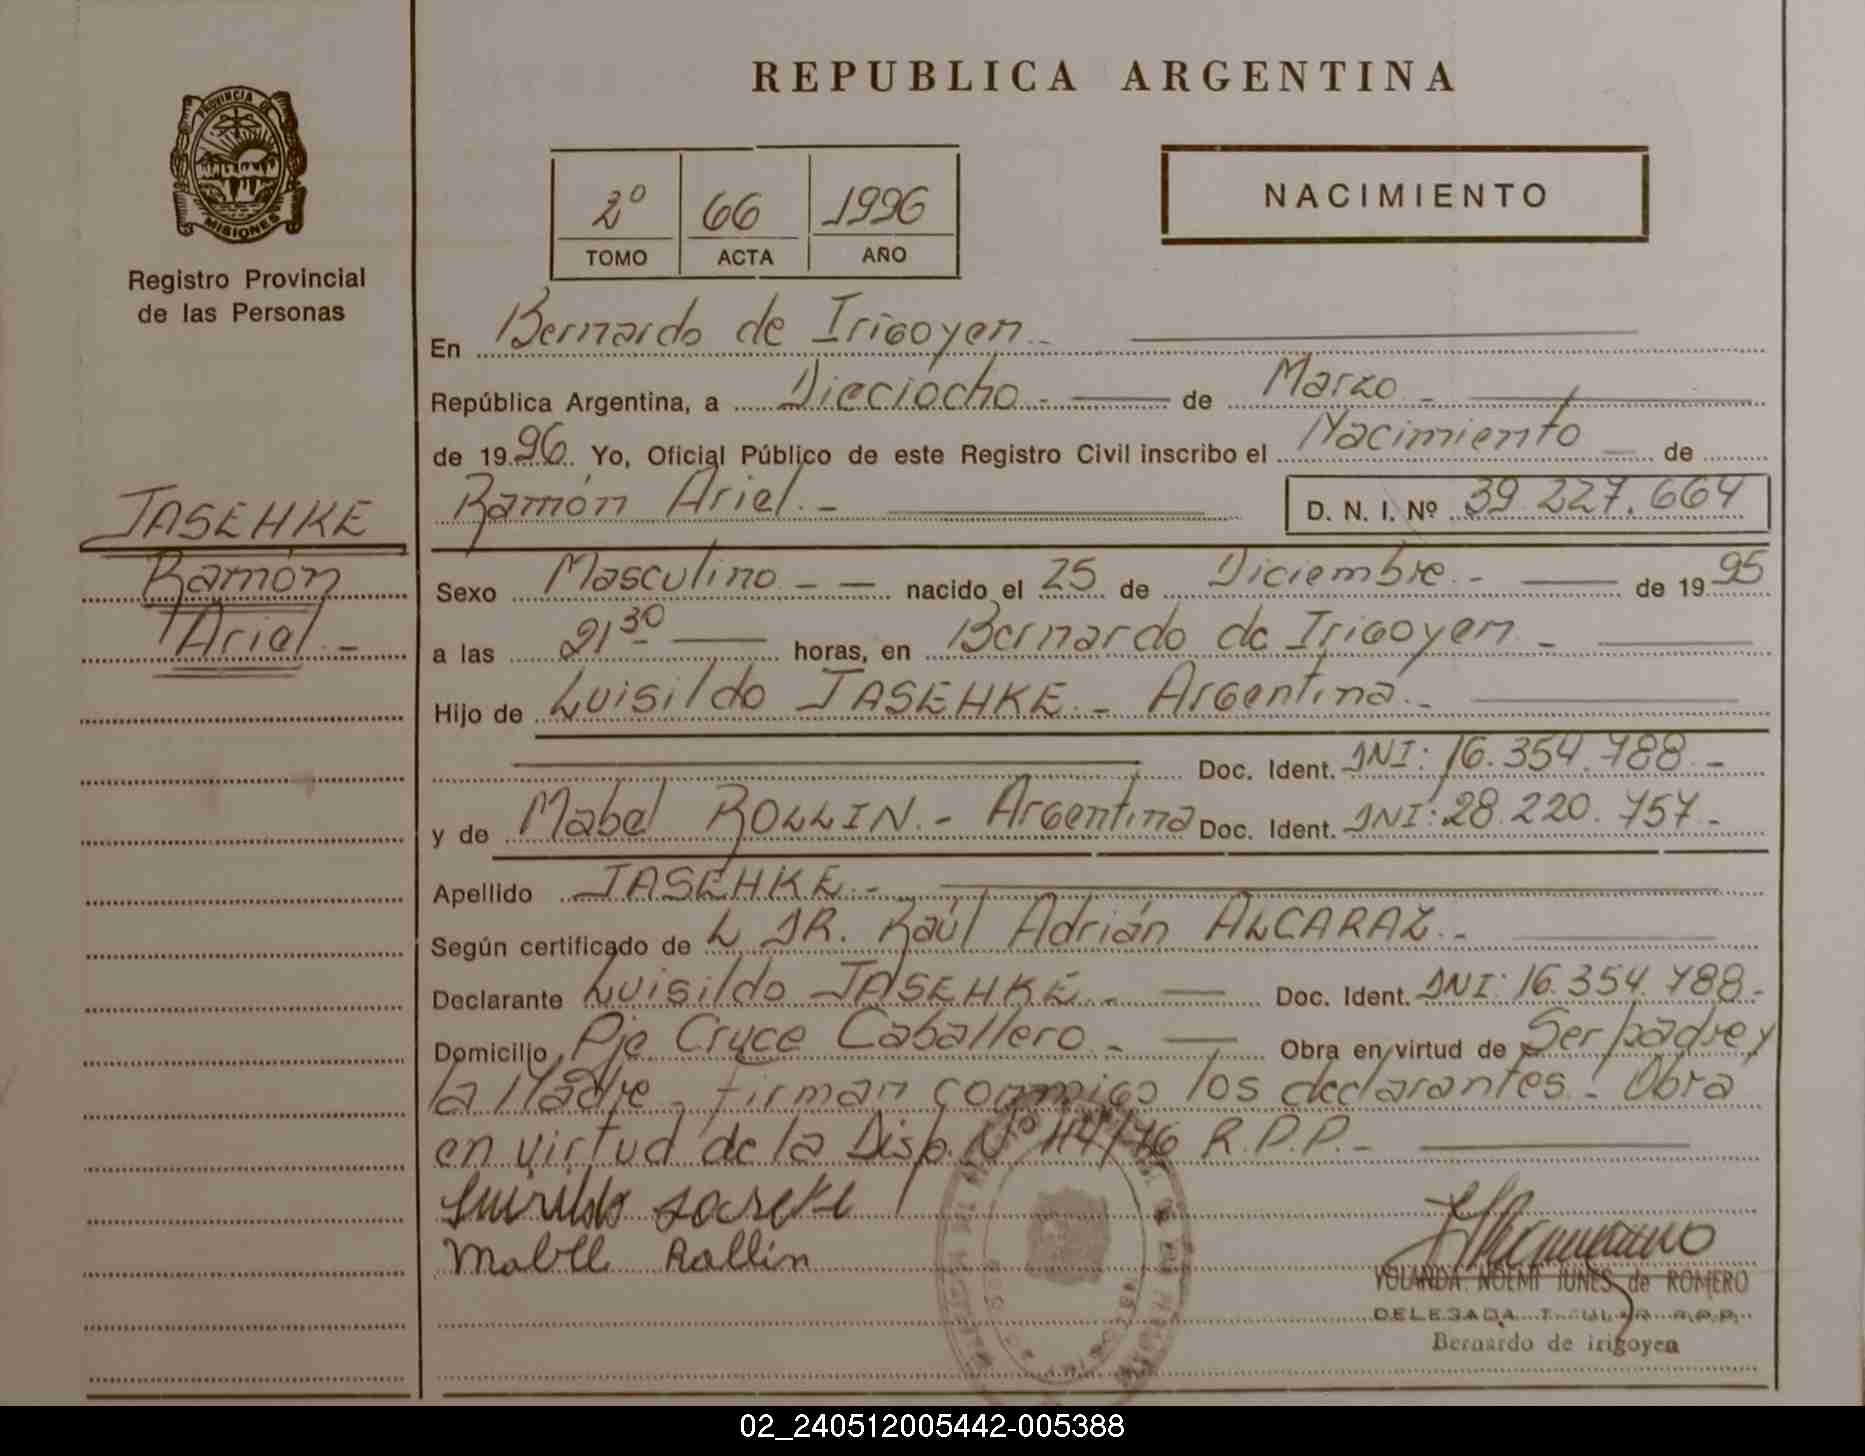 REPUBLICA ARGENTINA
PROVINCIA DE
MISIONES
Registro Provincial
de las Personas
2º 66 1996
TOMO ACTA AÑO
NACIMIENTO
En Bernardo de Irigoyen.-
República Argentina, a Dieciocho.- de Marzo.-
de 1996. Yo, Oficial Público de este Registro Civil inscribo el Nacimiento de
Ramón Ariel.- D. N. I. Nº 39.227.664
JASEHKE
Ramón
Ariel.-
Sexo Masculino.- nacido el 25 de Diciembre.- de 1995
a las 21 30 horas, en Bernardo de Irigoyen.-
Hijo de Luisildo JASEHKE.- Argentina.-
Doc. Ident. DNI: 16.354.788.-
y de Mabel ROLLIN.- Argentina Doc. Ident. DNI: 28.220.757.-
Apellido JASEHKE.-
Según certificado de L DR. Raúl Adrián ALCARAZ.-
Declarante Luisildo JASEHKE.- Doc. Ident. DNI: 16.354.788.-
Domicilio Pje Cruce Caballero.- Obra en virtud de Ser padre y
la Madre.- firman conmigo los declarantes.- Obra
en virtud de la Disp. Nº 114/76 R.P.P.-
Mabell Rollin
YOLANDA NOEMI JUNES de ROMERO
DELEGADA TITULAR R.P.P.
Bernardo de irigoyen
02_240512005442-005388